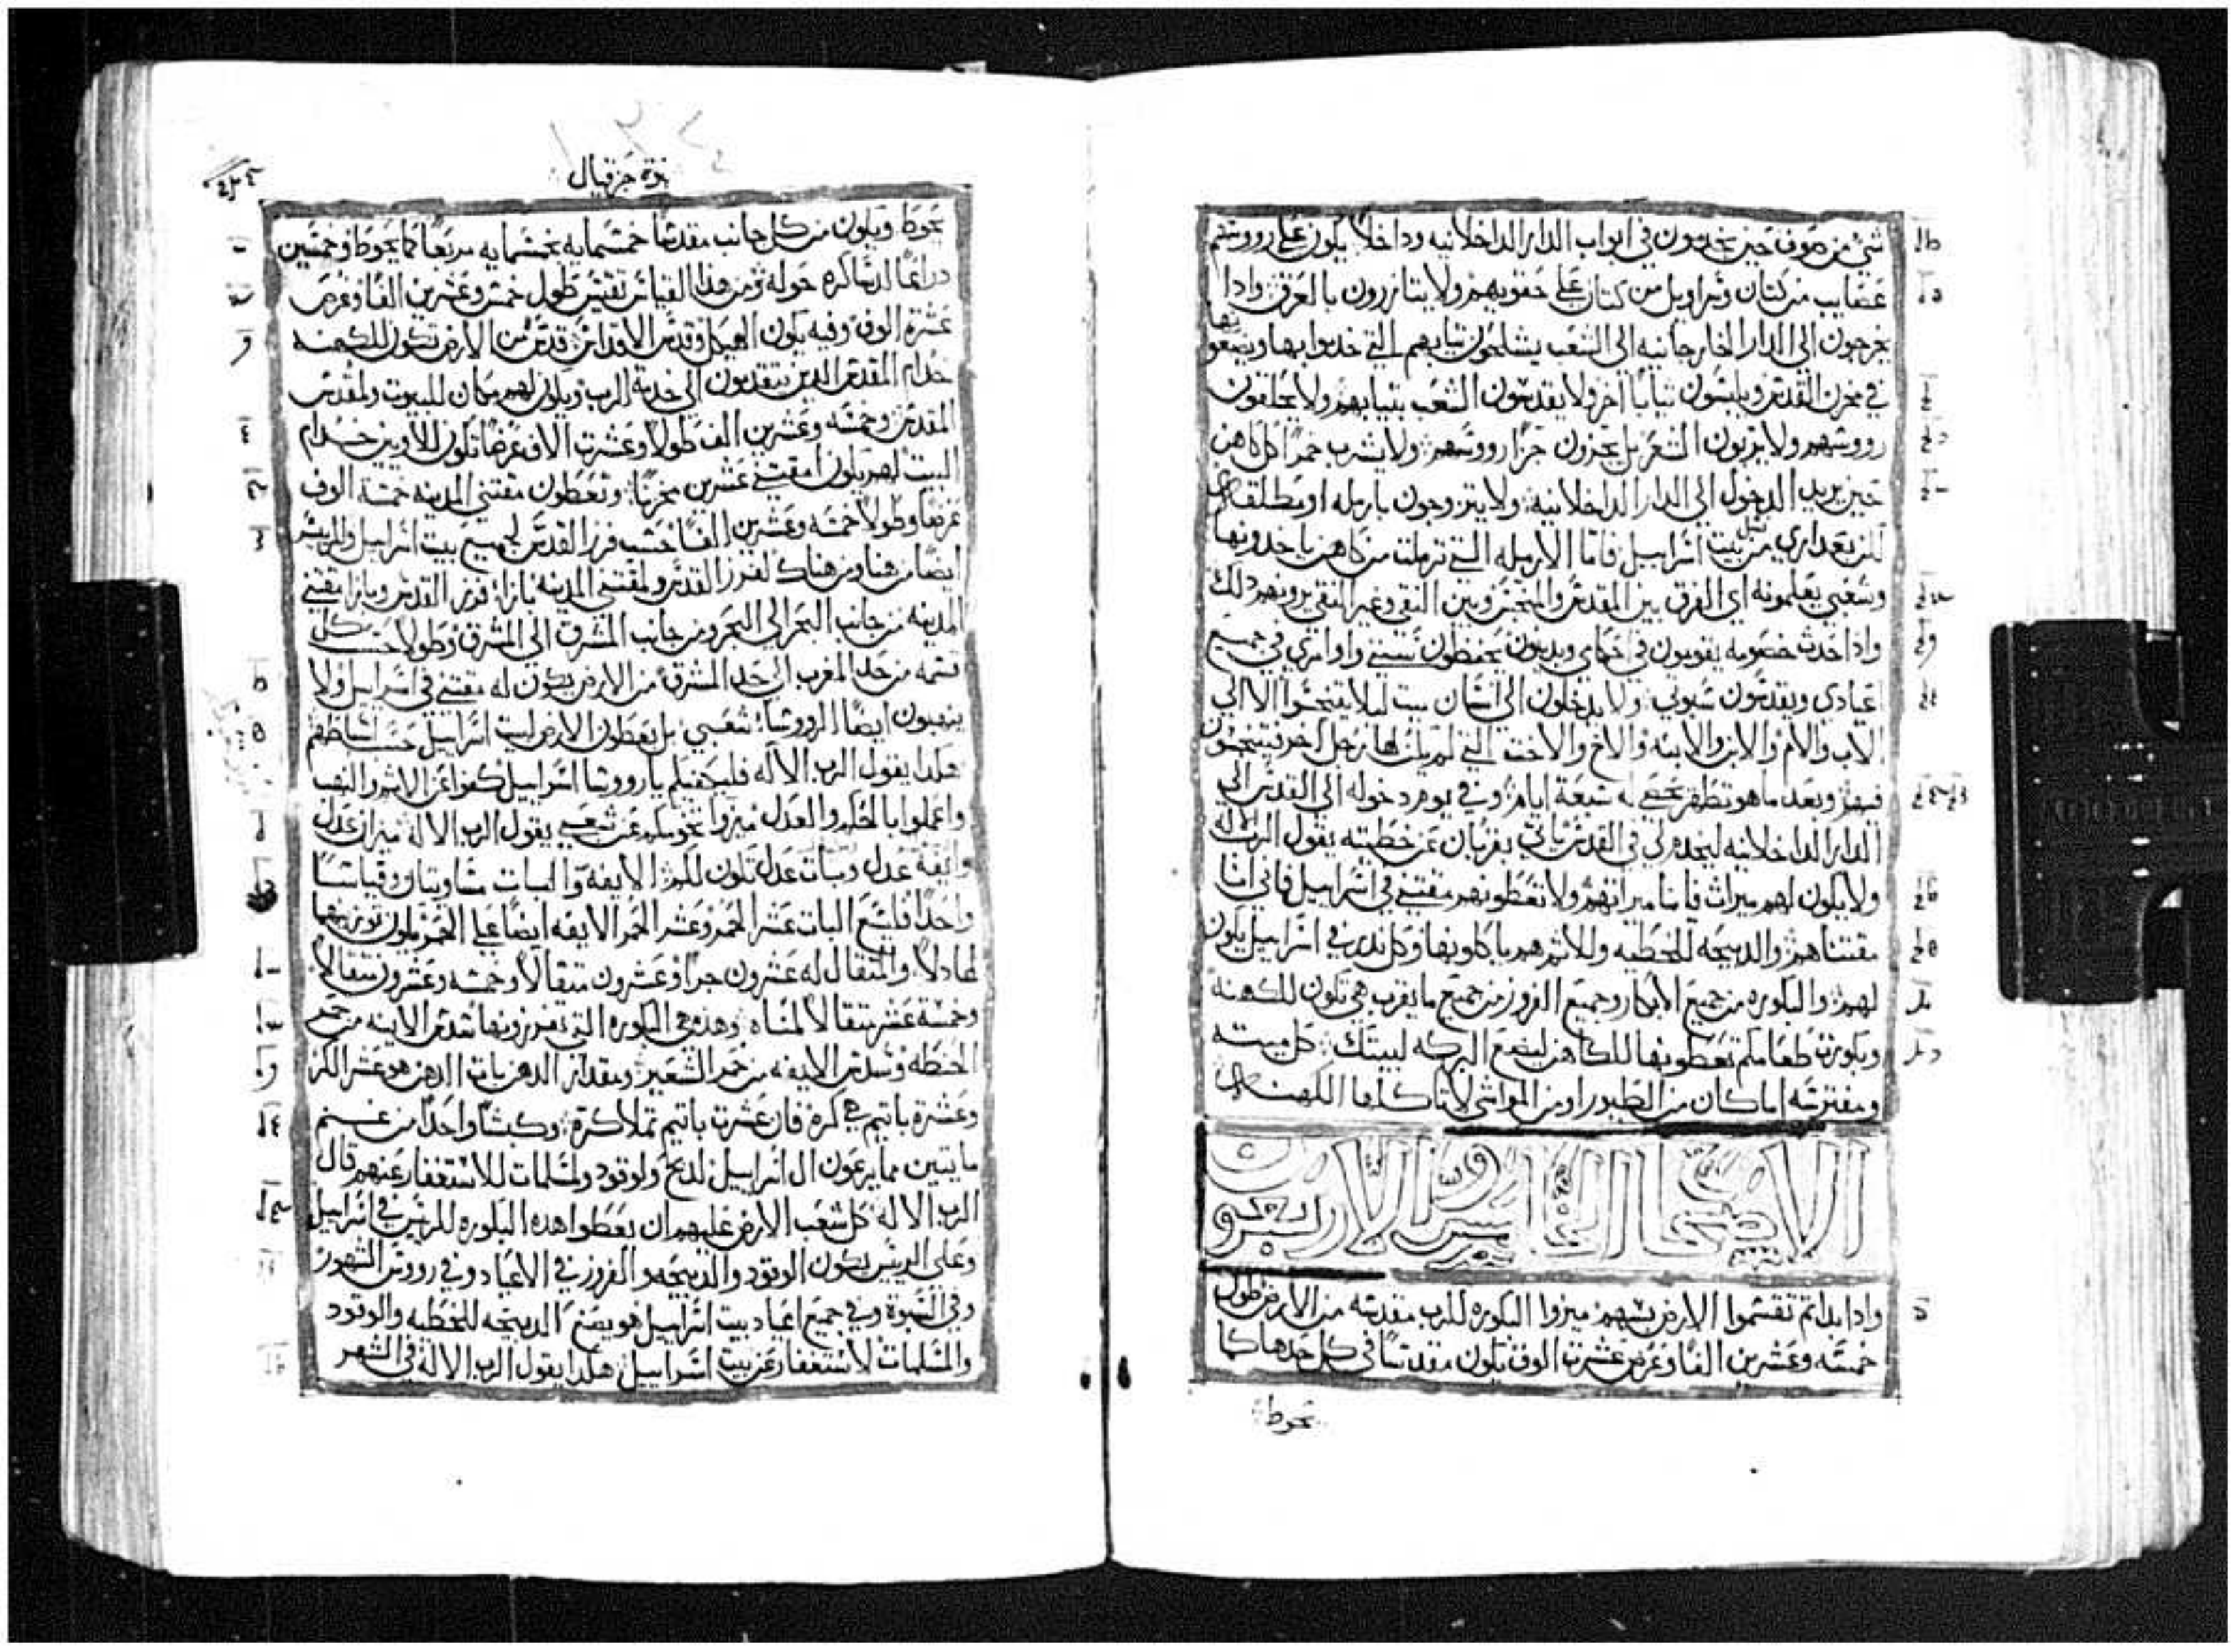 شي من صوف حين يخدمون في ابواب الدار الداخلانيه وداخلاً يكون علي رووسهم
عصايب من كتان وسراويل من كتان علي حقويهم ولا يتازرون بالعرق واذا
يخرجون الي الدار الخارجانيه الي الشعب يشلحون تيابهم التي خدموا بها ويضعونها
في مخزن القدس ويلبسون تياباً اخر ولا يقدسون الشعب بتيابهم ولا يحلقون
رووسهم ولا يربون الشعر بل يجزون جزاً رووسهم ولا يشرب خمراً كل كاهن
حين يريد الدخول الي الدار الداخلانيه ولا يتزوجون بارمله او مطلقه
لكن بعداري من نسل بيت اسراييل فاما الارمله التي ترملت من كاهن ياخدونها
وشعبي يعلمونه اي الفرق بين المقدس والمنجس وبين النقي وغير النقي يرونهم دلك
وادا حدث خصومه يقومون في حكمي ويدينون يحفظون سنني واوامري في جميع
اعيادي ويقدسون سبوتي ولا يدخلون الي انسان ميت ليلا يتنجسوا الا الي
الاب والام والابن والابنه والاخ والاخت التي لم يكن لها رجل اخر يتنجسون
فيهم وبعد ما هو تطهر يحصي له سبعة ايام وفي يوم دخوله الي القدس الي
الدار الداخلانيه ليخدم لي في القدس ياتي بقربان عن خطيته يقول الرب الاله
ولا يكون لهم ميرات فانا ميراتهم ولا تعطونهم مقتني في اسراييل فاني انا
مقتناهم والدبيحه للخطيه وللاثم هم ياكلونها وكل ندر في اسراييل يكون
لهم والبكوره من جميع الابكار وجميع الفروز من جميع ما يقرب هي تكون للكهنه
وبكورة طعامكم تعطونها للكاهن ليضع البركه لبيتك كل ميته
ومفترسه اما كان من الطيور او من المواشي لا تاكلها الكهنه
الاصحاح الخامس والاربعون
وادا بداتم تقسموا الارض بسهم ميزوا البكوره للرب مقدسه من الارض طول
خمسه وعشرين الفاً وعرض عشرة الوف يكون مقدساً في كل حدها كما
تحوط
نبوة حزقيال
تحوط ويكون من كل جانب مقدساً خمسمايه بخمسمايه مربعاً كما يحوط وخمسين
دراعاً لدساكره حوله ومن هذا القياس تقيس طول خمس وعشرين الفاً وعرض
عشرة الوف وفيه يكون الهيكل وقدس الاقداس قدس من الارض تكون للكهنه
خدام المقدس الدين يتقدمون الي خدمة الرب ويكون لهم مكان للبيوت ولمقدس
المقدس وخمسه وعشرين الف طولاً وعشرة الاف عرضاً تكون للاويين خدام
البيت لهم يكون لمقتني عشرين مخزناً وتعطون مقتني المدينه خمسة الوف
عرضاً وطولاً خمسه وعشرين الفاً حسب فرز القدس لجميع بيت اسراييل وللرييس
ايضاً من هنا ومن هناك لفرز القدس ولمقتني المدينه بازا فرز القدس وبازا مقتني
المدينه من جانب البحر الي البحر ومن جانب المشرق الي المشرق وطولاً حسب كل
قسمه من حد المغرب الي حد المشرق من الارض يكون له مقتني في اسراييل ولا
ينهبون ايضاً الرووسا شعبي بل يعطون الارض لبيت اسراييل حسب اسباطهم
هكدا يقول الرب الاله فليكفيكم يا رووسا اسراييل كفوا عن الاثم والنهب
واعملوا بالحكم والعدل ميزوا تخومكم عن شعبي يقول الرب الاله ميزان عدل
وايفة عدل وبات عدل تكون لكم الايفه والبات متساويتان وقياساً
واحداً فلتسع البات عشر الخمر وعشر الخمر الايفه ايضاً علي الخمر يكون توزينهما
عادلاً والمتقال له عشرون جراً وعشرون متقالاً وخمسه وعشرون متقالاً
وخمسة عشر متقالاً لمناه وهذه هي البكوره التي تفرزونها سدس الايفه من خمر
الحنطه وسدس الايفه من خمر الشعير ومقدار الدهن بات الدهن هو عشر الكر
وعشرة باتيم هي كره فان عشرة باتيم تملا كرة وكبشاً واحداً من غنم
مايتين مما يرعون ال اسراييل لدبح ولوقود ولسلامات للاستغفار عنهم قال
الرب الاله كل شعب الارض عليهم ان يعطوا هده البكوره للرييس في اسراييل
وعلي الرييس يكون الوقود والدبيحه والفروز في الاعياد وفي رووس الشهور
وفي السبوة وفي جميع اعياد بيت اسراييل هو يصنع الدبيحه للخطيه والوقود
والسلامات لاستغفار عن بيت اسراييل هكدا يقول الرب الاله في الشهر